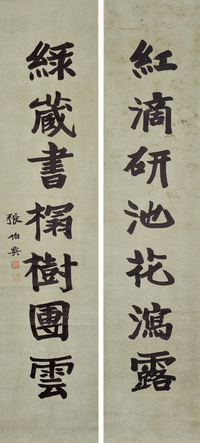 紅滴研池花瀉露
綠蔵書榻樹團雲
張伯英